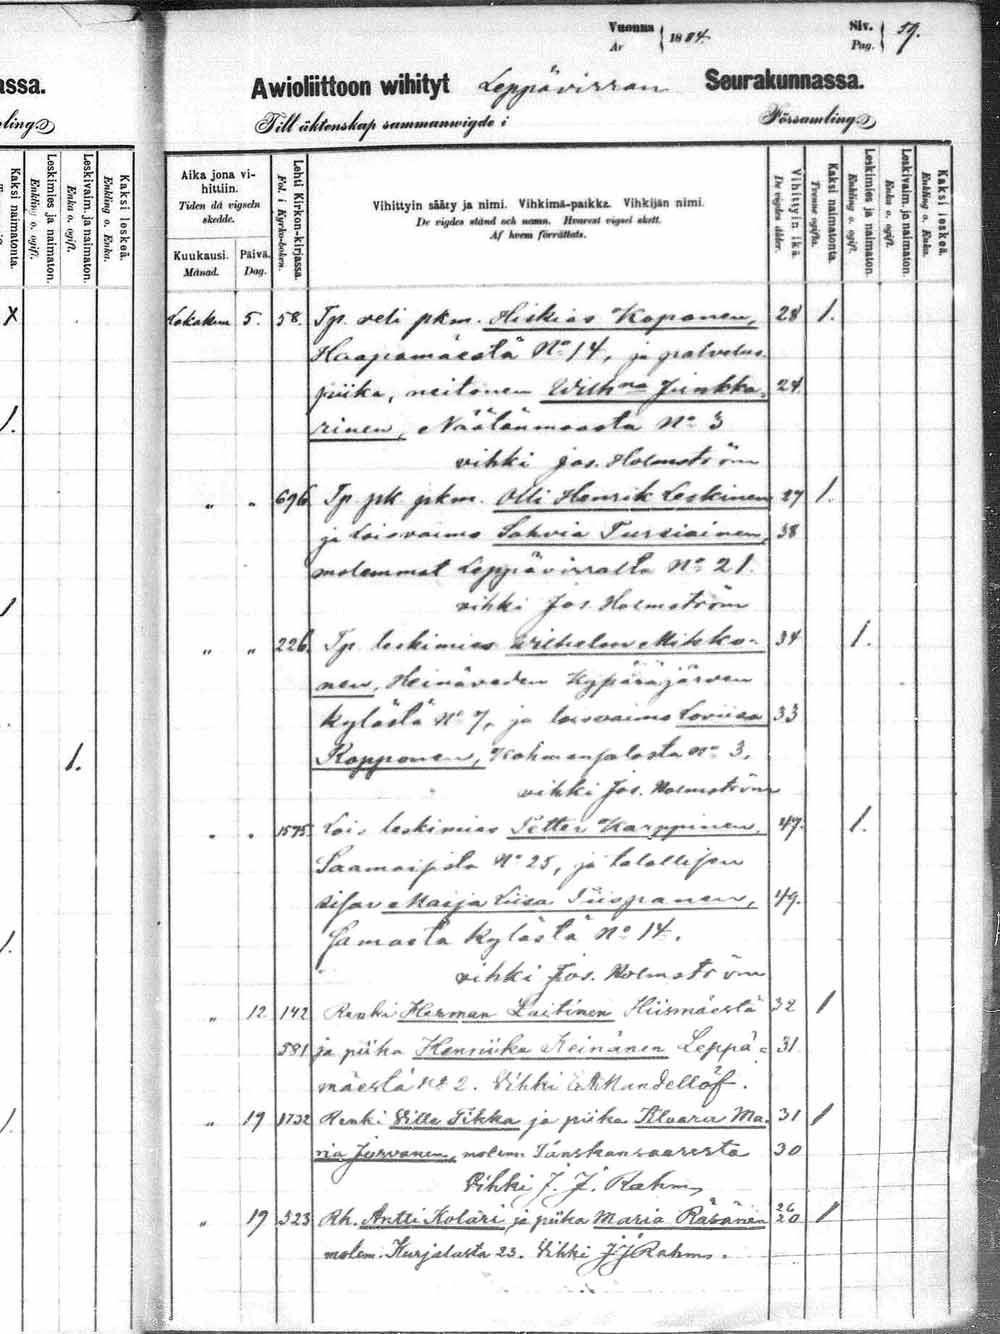 Vuonna
År
1884.
Siv.
Pag.
59.
Awioliittoon wihityt Leppävirran Seurakunnassa.
Till äktenskap sammanwigde i Församling.
assa.
ling.
Aika jona vi-
hittiin.
Tiden då vigseln
skedde.
Kuukausi.
Månad.
Päivä.
Dag.
Lehti Kirkon-kirjassa.
Fol. i Kyrko-boken.
Vihittyin sääty ja nimi. Vihkimä-paikka. Vihkijän nimi.
De vigdes stånd och namn. Hvarest vigsel skett.
Af hvem förrättats.
Vihittyin ikä.
De vigdes ålder.
Kaksi naimatonta.
Tvenne ogifta.
Leskimies ja naimaton.
Enkling o. ogift.
Leskivaim. ja naimaton.
Enka o. ogift.
Kaksi leskeä.
Enkling o. Enka.
Kaksi naimatonta.
Leskimies ja naimaton.
Enkling o. ogift.
Leskivaim. ja naimaton.
Enka o. ogift.
Kaksi leskeä.
Enkling o. Enka.
Lokakuu 5. 58. Tp. veli pkm. Hiskias Koponen, 28 1.
Haapamäestä No 14, ja palvelus
piika, neitonen Wilhna Junkka- 24
rinen, Näätänmaasta No 3
vihki Jos. Holmström
" " 696. Tp. pk pkm. Olli Henrik Leskinen 27 1.
ja loisvaimo Sohvia Tursiainen, 38
molemmat Leppävirralta No 21.
vihki Jos. Holmström
" " 226. Tp. leskimies Wilhelm Mikko- 34 1.
nen, Heinäveden Kypäräjärven
kylästä No 7, ja loisvaimo Loviisa 33
Kopponen, Kohmanpalosta No 3.
vihki Jos. Holmström
" " 1575 Lois leskimies Petter Karppinen, 47. 1.
Saamaisista No 25, ja talollisen
sisar Maija Liisa Tiispanen, 49.
samasta kylästä No 14.
vihki Jos. Holmström
" 12 142 Renki Herman Laitinen Hiismäestä 32 1
581 ja piika Henriika Keinänen Leppä= 31
mäestä No 2. Vihki E. A. Mandellöf.
" 19 1732 Renki Ville Tikka ja piika Klaara Ma- 31 1
ria Jurvanen, molem. Tanskansaaresta 30
Vihki J. J. Rahm
" 19 323 Rk. Antti Kolari ja piika Maria Räsänen 26 20 1
molem. Kurjalasta 23. Vihki J J Rahm.
X
1.
1
1.
1.
1